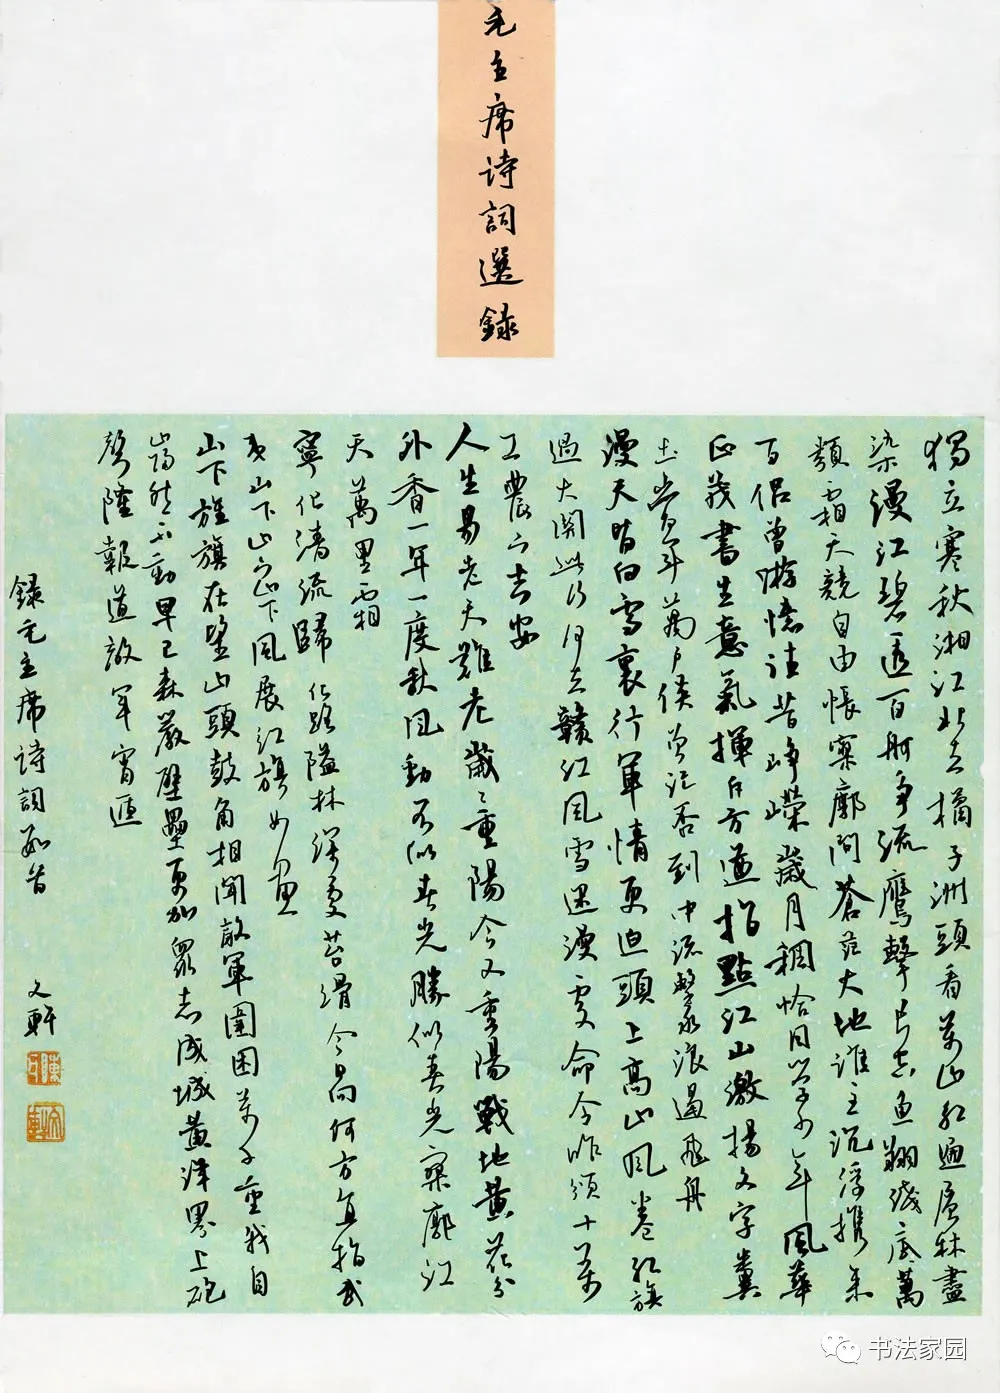 毛主席诗詞選録
獨立寒秋湘江北去橘子洲頭看萬山紅遍層林盡
染漫江碧透百舸争流鷹擊長空魚翔淺底萬
類霜天競自由悵寥廓問蒼茫大地誰主沉浮攜來
百侣曾游憶往昔崢嶸歲月稠恰同學少年風華
正茂書生意氣揮斥方遒指點江山激揚文字糞
土當年萬户侯曾记否到中流擊水浪遏飛舟
漫天皆白雪裏行軍情更迫頭上高山風卷紅旗
過大関此行何去贛江風雪迷漫處命令昨頒十萬
工農下吉安
人生易老天難老歲〻重陽今又重陽戰地黄花分
外香一年一度秋風勁不似春光勝似春光寥廓江
天萬里霜
寧化清流歸化路隘林深苔滑今日何方直指武
夷山下山下山下風展紅旗如畫
山下旌旗在望山頭鼓角相聞敵軍圍困萬千重我自
巋然不動早已森嚴壁壘更加衆志成城黄洋界上砲
聲隆報道敵軍宵遁
録毛主席诗詞數首 文軒
书法家园